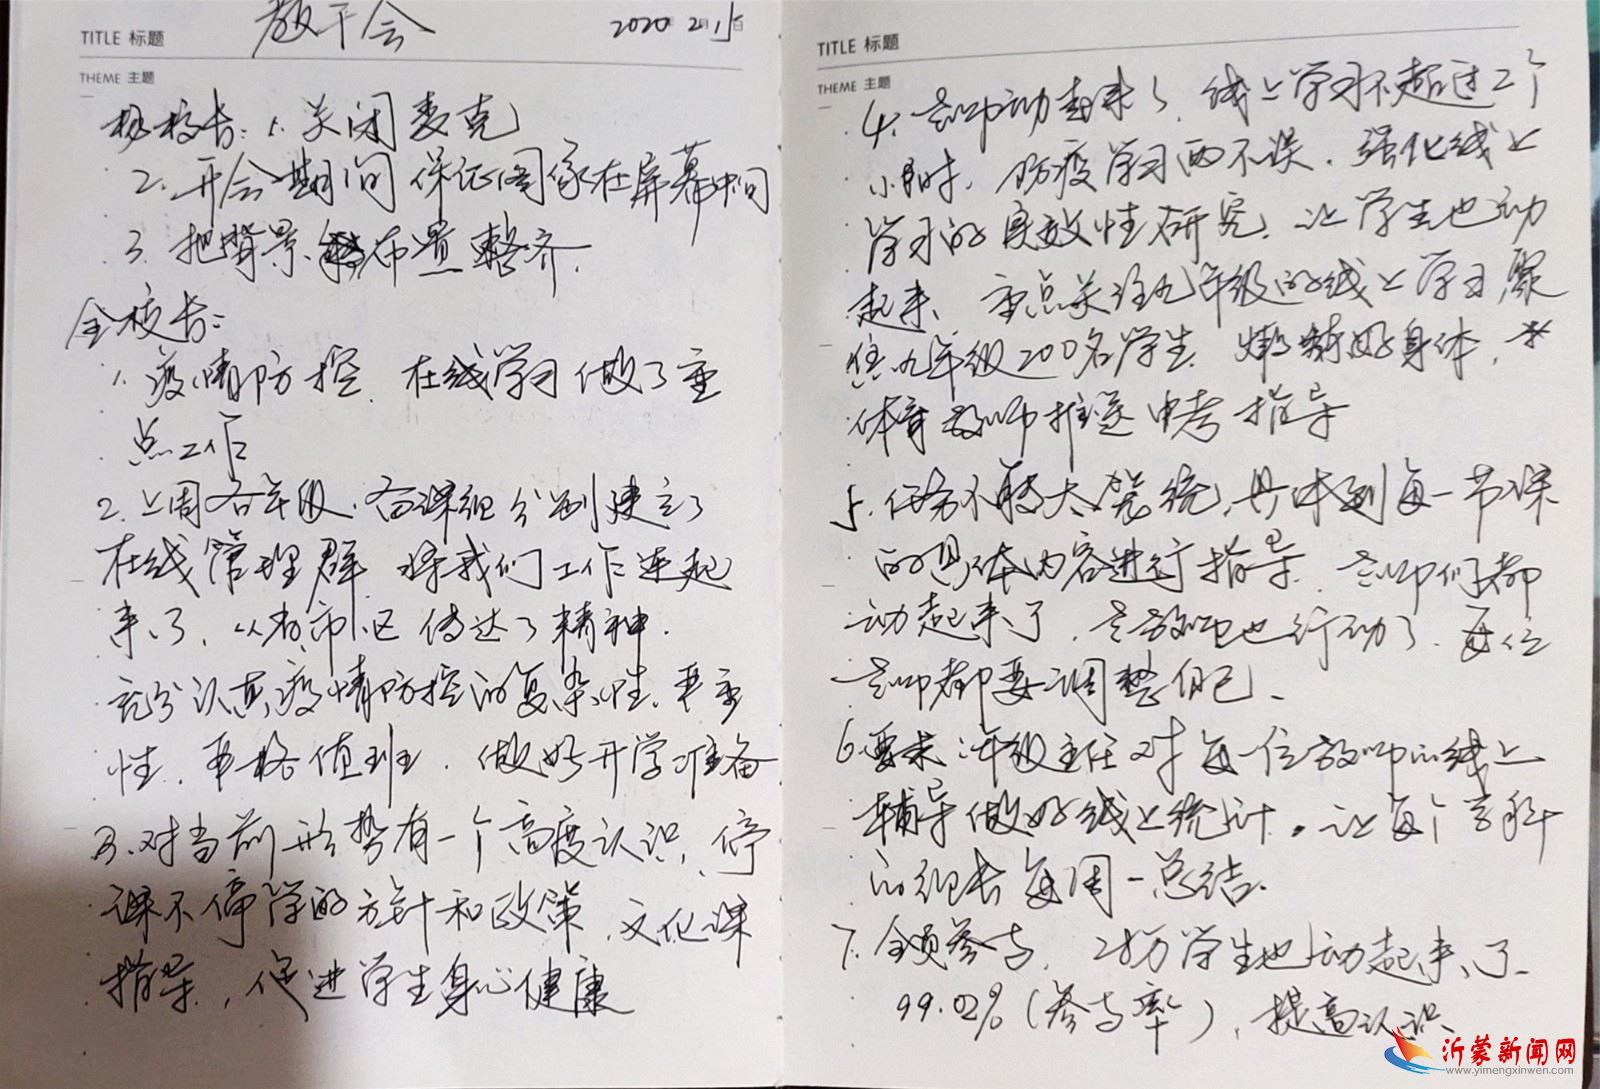 TITLE 标题 教干会 2020年2月15日
THEME 主题
杨校长：1.关闭麦克
2.开会期间保证图像在屏幕中间
3.把背景布置整齐.
全校长：
1.疫情防控.在线学习做了重
点工作
2.上周各年级.备课组分别建立了
在线管理群.将我们工作连起
来了，从省市区传达了精神.
充分认真疫情防控的复杂性.严重
性.严格值班.做好开学准备
3.对当前形势有一个高度认识，停
课不停学的方针和政策.文化课
指导，促进学生身心健康
TITLE 标题
THEME 主题
4.老师动起来了.线上学习不超过2个
小时.防疫学习两不误.强化线上
学习的实效性研究.让学生也动
起来.重点关注九年级的线上学习,聚
焦九年级200名学生.锻炼好身体,
体育教师推送中考指导
5.任务不要太笼统,具体到每一节课
的具体内容进行指导.老师们都
动起来了.老教师也行动了.每位
老师都要调整自己.
6.要求:年级主任对每一位教师的线上
辅导做好线上统计.让每个学科
的组长每周一总结.
7.全员参与，2.8万学生也动起来了.
99.02%(参与率),提高认识.
沂蒙新闻网
www.yimengxinwen.com